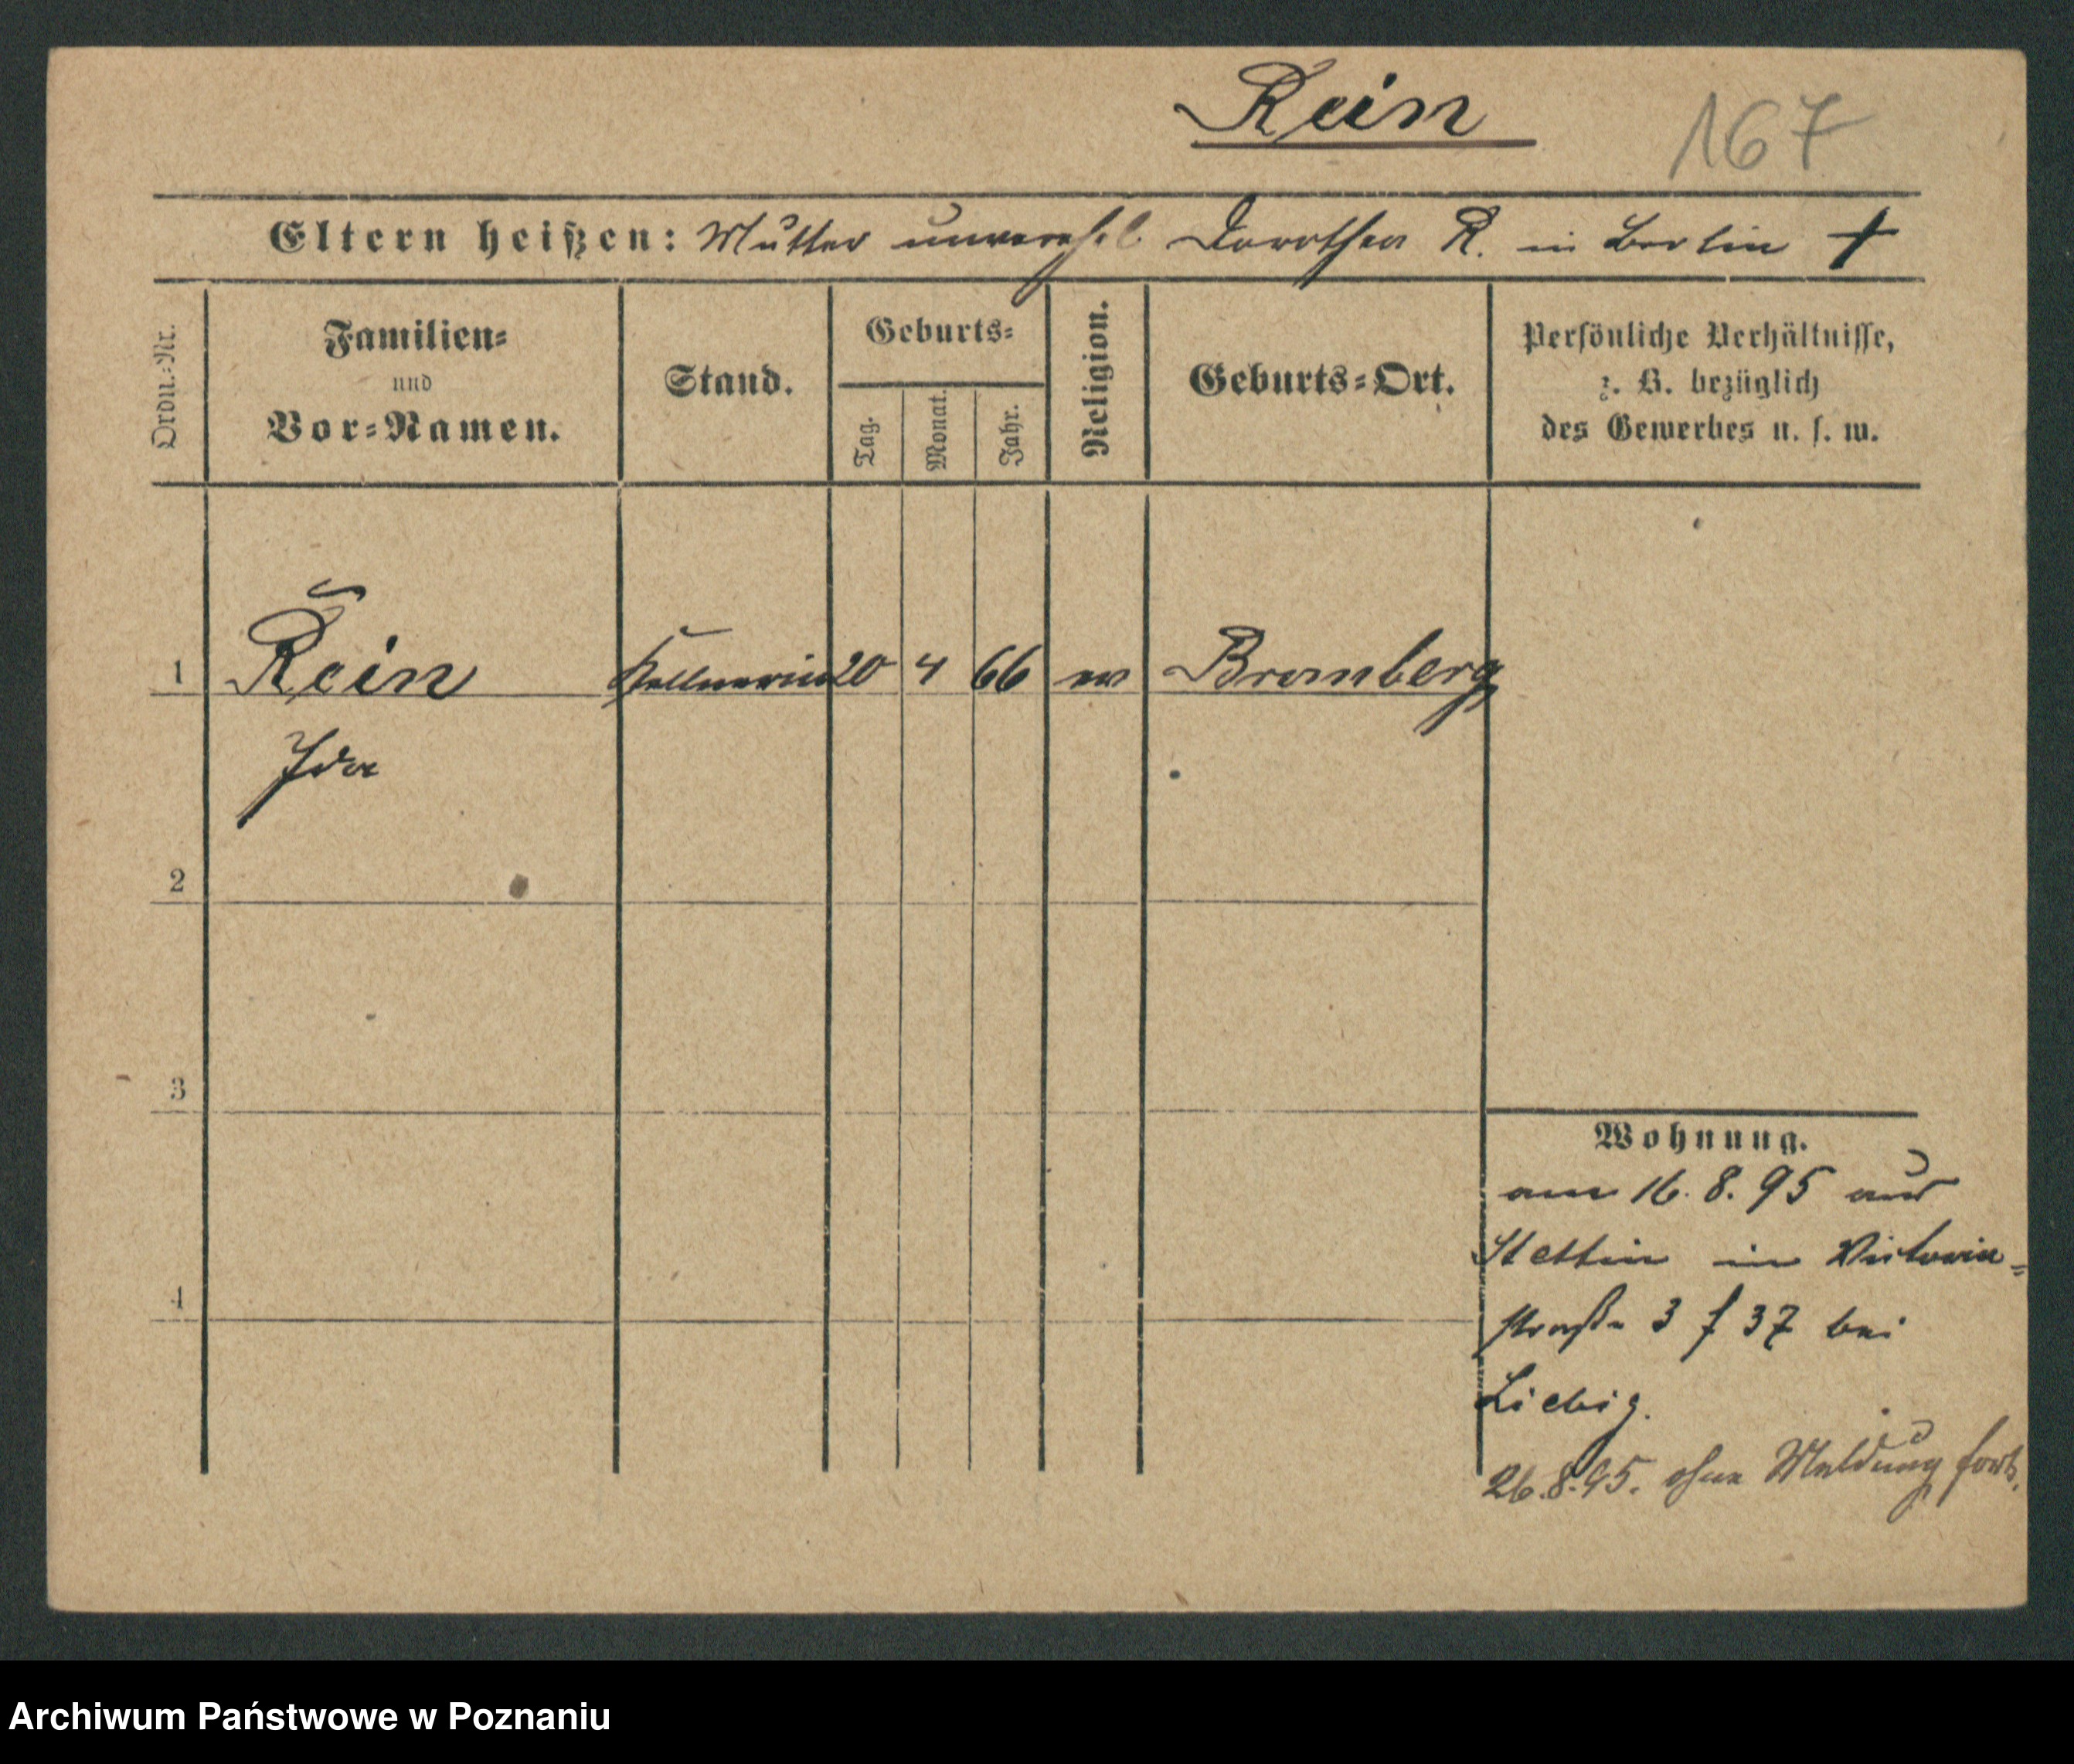 Rein
167
Eltern heißen: Mutter unverehel. Dorothea R. in Berlin †
Ordn.-Nr.
Familien-
und
Vor-Namen.
Stand.
Geburts-
Tag.
Monat.
Jahr.
Religion.
Geburts-Ort.
Persönliche Verhältnisse,
z. B. bezüglich
des Gewerbes u. s. w.
1 Rein Kellnerin 20 4 66 ev Bromberg
Ida
2
3
4
Wohnung.
am 16. 8. 95 aus
Stettin in Victoria=
straße 3 f 37 bei
Liebig.
26.8.95. ohne Meldung fort.
Archiwum Państwowe w Poznaniu